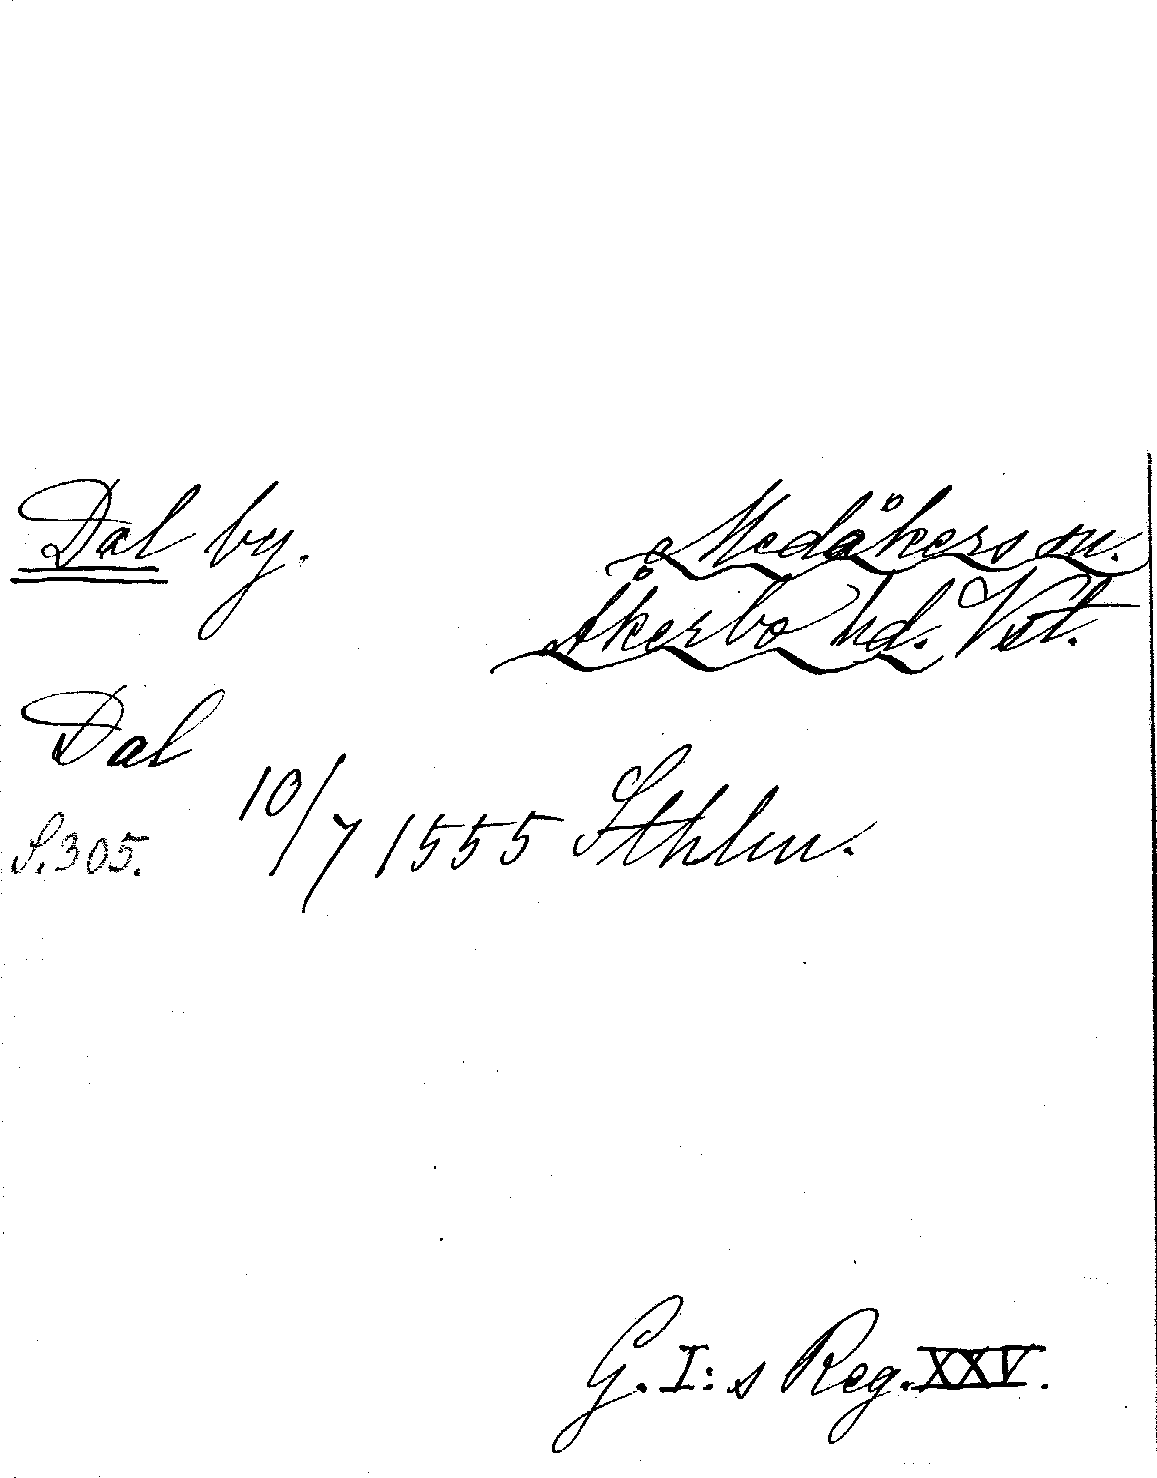 Dal by.
Medåkers sn.
Åkerbo hd. Vstl.
Dal
10/7 1555 Sthlm.
S. 305.
G. I:s Reg. XXV.